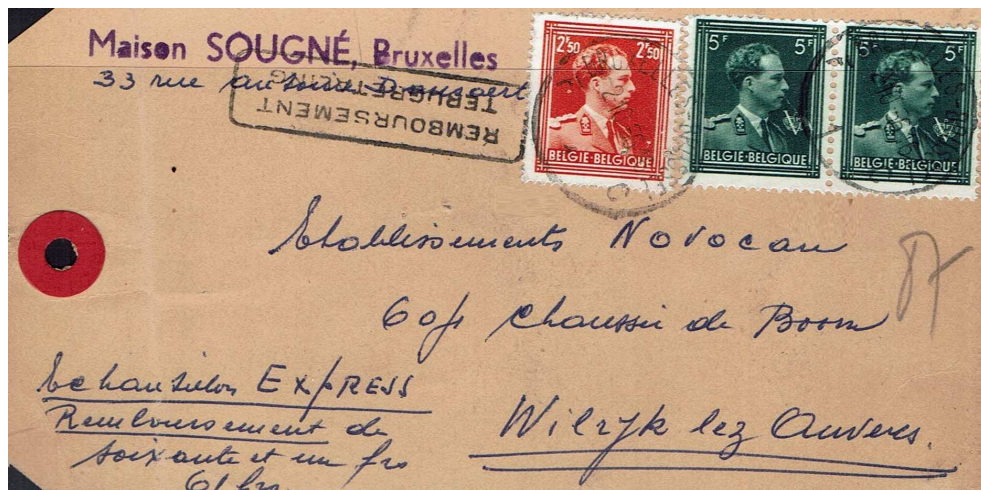 Maison SOUGNÉ, Bruxelles
33 rue antoine Dansaert
REMBOURSEMENT
TERUGBETALING
2F50 2F50
BELGIE·BELGIQUE
5F 5F
BELGIE·BELGIQUE
5F 5F
BELGIE·BELGIQUE
Etablissements Novocan
Chaussée de Boom
Wilryk lez Anvers.
87
Echantillon EXPRESS
Remboursement de
soixante et un frs
61 frs